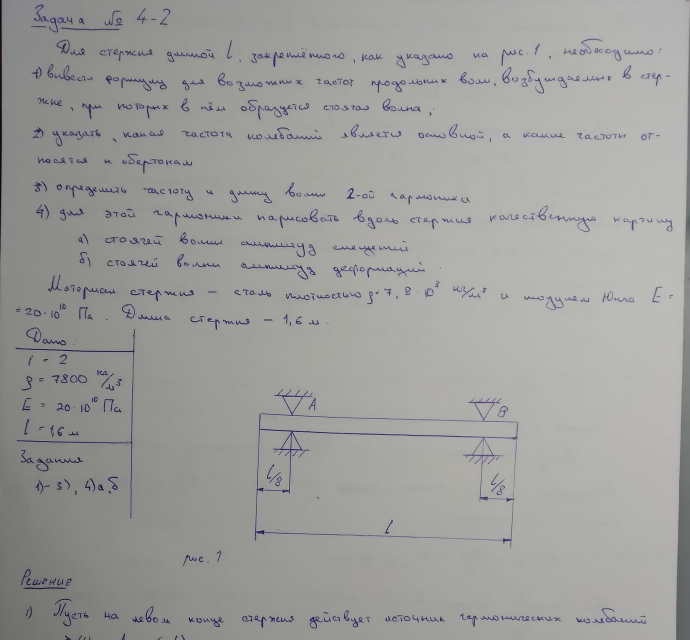 Задача № 4-2
Для стержня длиной l, закреплённого, как указано на рис. 1, необходимо:
1) вывести формулу для возможных частот продольных волн, возбуждаемых в стер-
жне, при которых в нём образуется стоячая волна;
2) указать, какая частота колебаний является основной, а какие частоты от-
носятся к обертонам
3) определить частоту и длину волны 2-ой гармоники
4) для этой гармоники нарисовать вдоль стержня качественную картину
а) стоячей волны амплитуд смещений
б) стоячей волны амплитуд деформаций.
Материал стержня – сталь плотностью ρ = 7,8·10³ кг/м³ и модулем Юнга E =
= 20·10¹⁰ Па. Длина стержня – 1,6 м.
Дано:
i = 2
ρ = 7800 кг/м³
E = 20·10¹⁰ Па
l = 1,6 м
Задания
1)-3), 4)а,б
A
B
l/8
l/8
l
рис. 1
Решение
1) Пусть на левом конце стержня действует источник гармонических колебаний